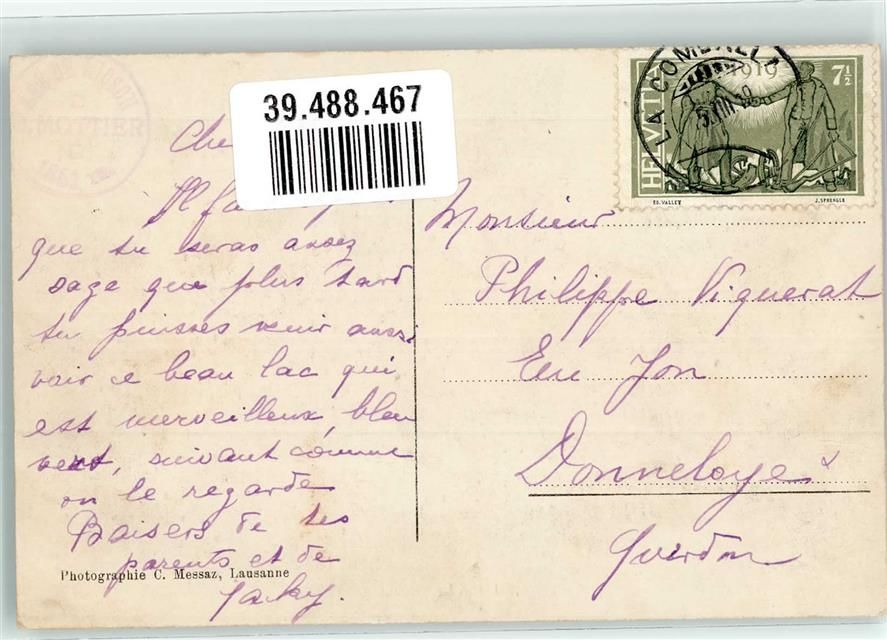 39.488.467
MOTTIER
LA COMBALLA
1919
7½
HELVETIA
ED. VALLET
J. SPRENGLE
que tu seras assez
sage que plus tard
tu puisses venir aussi
voir ce beau lac qui
est merveilleux, bleu
vert, suivant comme
on le regarde
Baisers de tes
parents et de
Jacky.
Photographie C. Messaz, Lausanne
Monsieur
Philippe Viquerat
En Jon
Donneloye
Yverdon